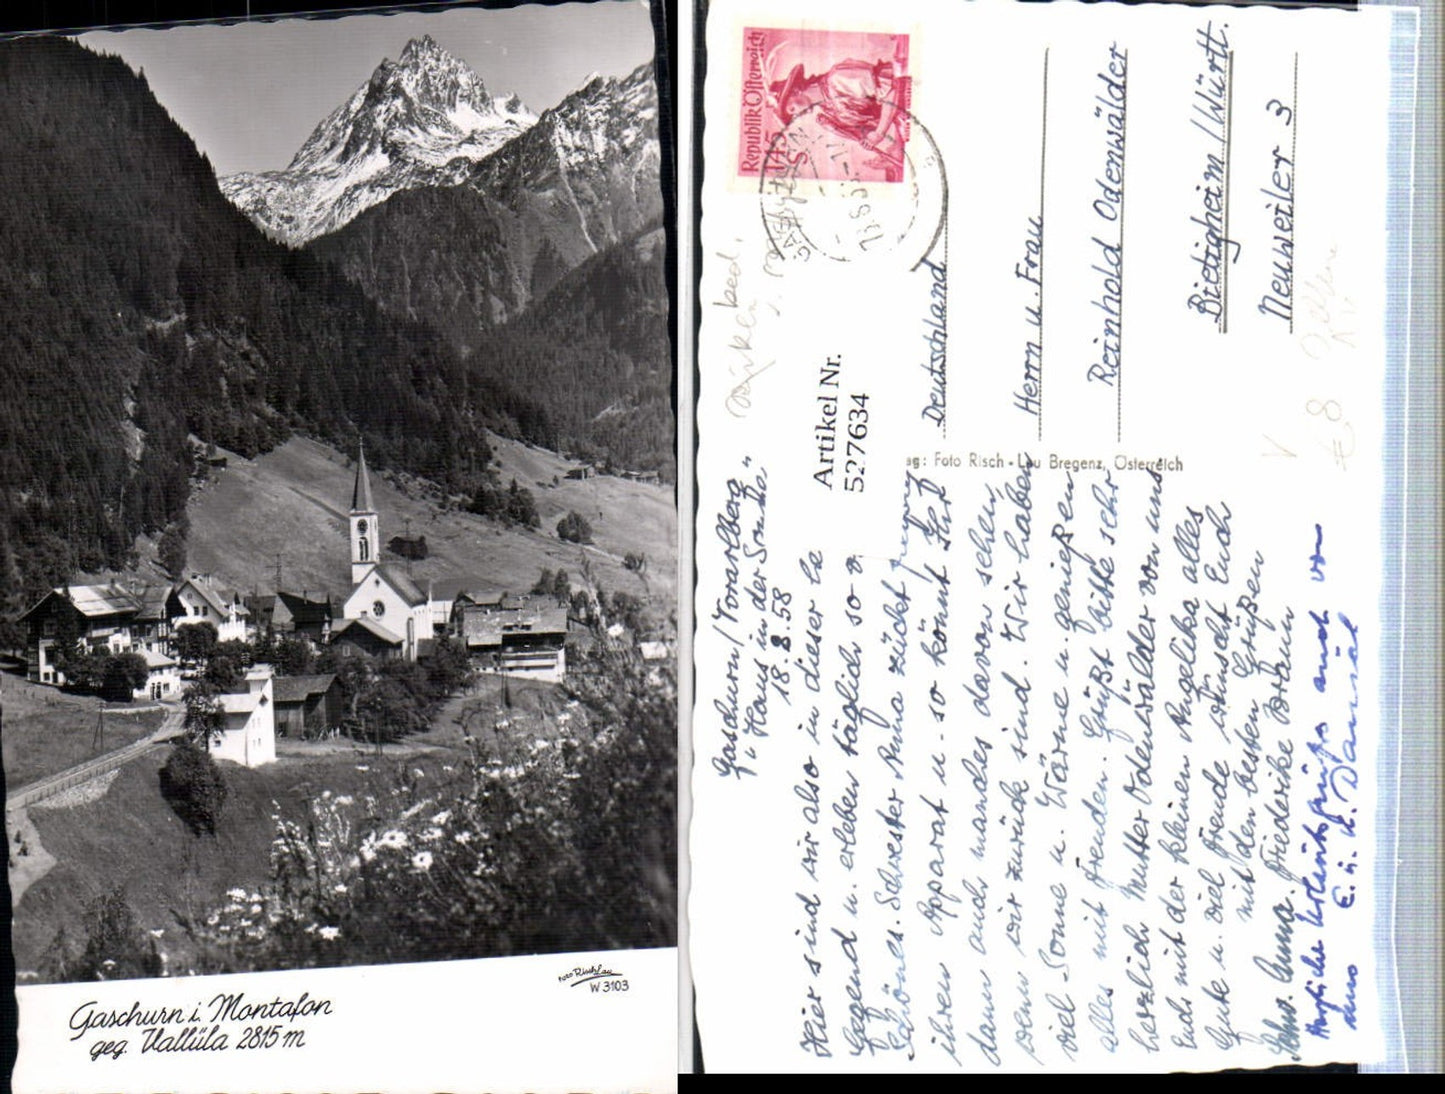 Gaschurn i. Montafon
geg. Vallüla 2815 m
Foto Risch-Lau
W 3103
Republik Österreich
1.45 S
Artikel Nr.
527634
Verlag: Foto Risch-Lau Bregenz, Österreich
Gaschurn/Vorarlberg
"Haus in der Sonne"
18.8.58
Hier sind wir also in dieser
Gegend u. erleben täglich so
Schönes. Schwester Anna zückt
ihren Apparat u. so könnt Ihr
dann auch manches davon sehen,
wenn wir zurück sind. Wir haben
viel Sonne u. Wärme u. genießen
alles mit Freuden. Grüßt bitte sehr
herzlich Mutter Odenwälder von uns
Euch mit der kleinen Angelika alles
Gute u. viel Freude wünscht Euch
mit den besten Grüßen
Schw. Anna. Friederike
Herzliche Urlaubsgrüße auch von
E. u. K.
Deutschland
Herrn u. Frau
Reinhold Odenwälder
Bietigheim/Württ.
Neuweiler 3
€8